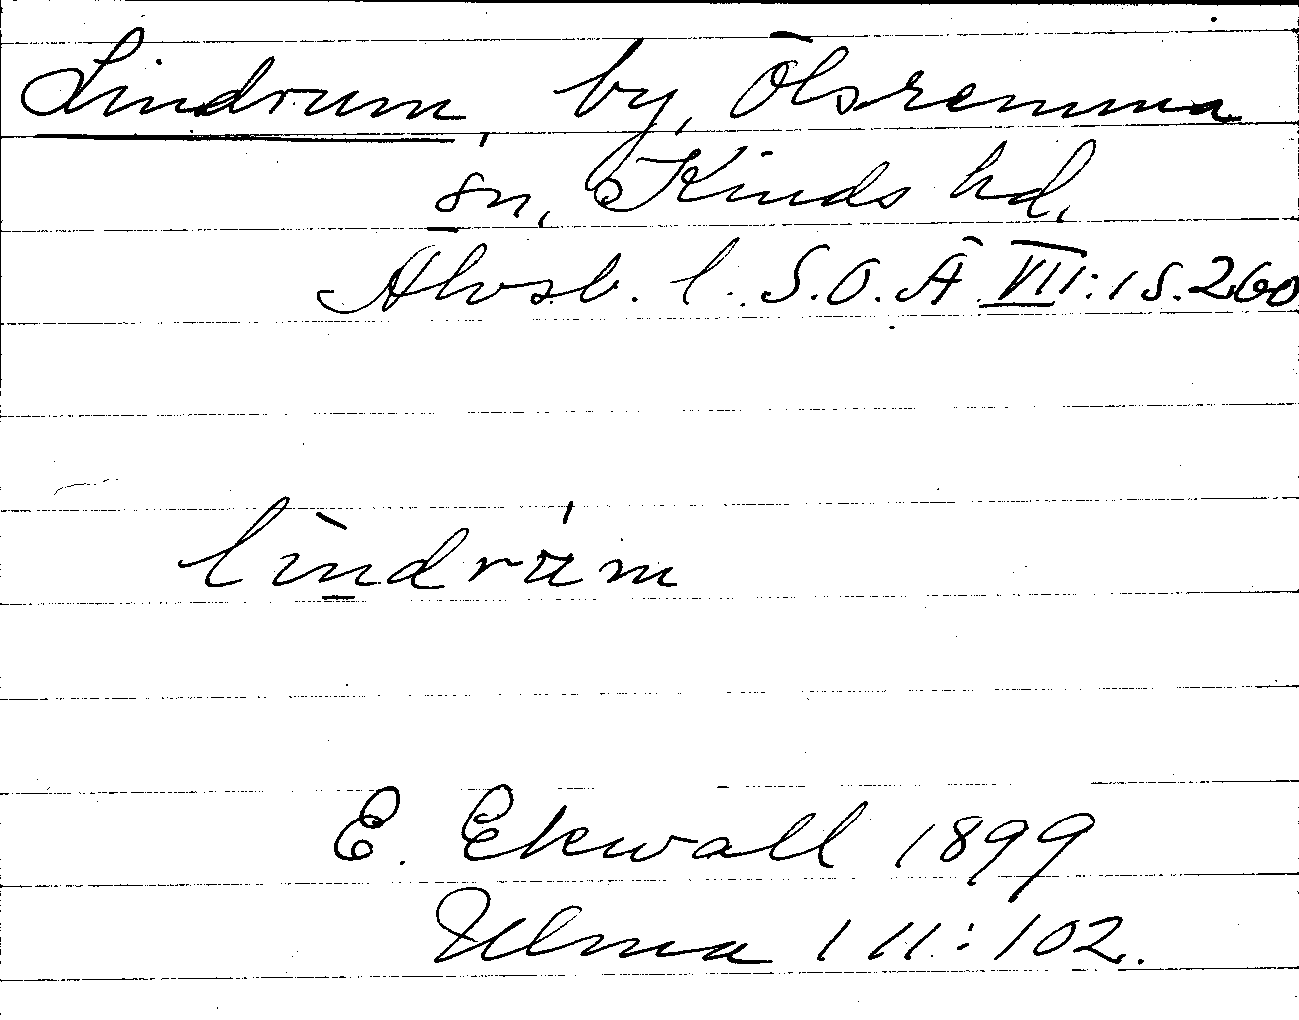 Lindrum, by, Ölsremma
sn, Kinds hd,
Älvsb. l. S.O.Ä VII:1 S.260
lìndrám
E. Ekwall 1899
Ulma 111:102.